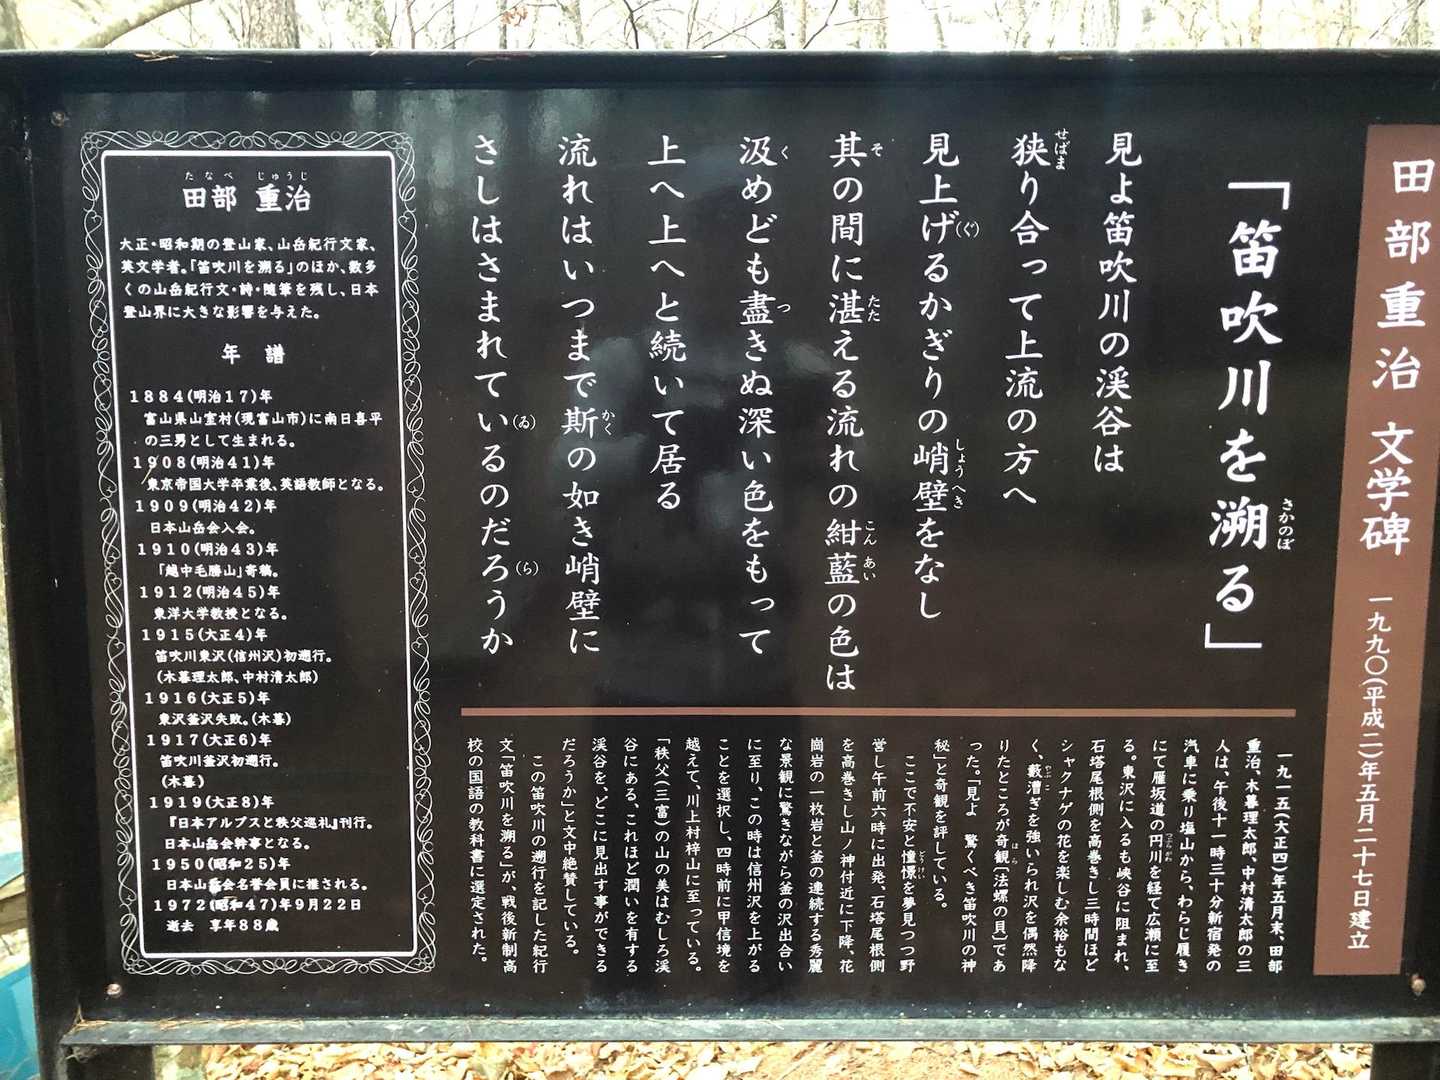 田部重治 文学碑 一九九〇(平成二)年五月二十七日建立
「笛吹川を溯る」
さかのぼ
見よ笛吹川の渓谷は
狭り合って上流の方へ
せばま
見上げるかぎりの峭壁をなし
(ぐ) しょうへき
其の間に湛える流れの紺藍の色は
そ たた こん あい
汲めども盡きぬ深い色をもって
く つ
上へ上へと続いて居る
流れはいつまで斯の如き峭壁に
かく
さしはさまれているのだろうか
(ゐ) (ら)
一九一五(大正四)年五月末、田部
重治、木暮理太郎、中村清太郎の三
人は、午後十一時三十分新宿発の
汽車に乗り塩山から、わらじ履き
にて雁坂道の円川を経て広瀬に至
つぶらがわ
る。東沢に入るも峡谷に阻まれ、
石塔尾根側を高巻きし三時間ほど
シャクナゲの花を楽しむ余裕もな
く、藪漕ぎを強いられ沢を偶然降
やぶこ
りたところが奇観〔法螺の貝〕であ
ほら
った。「見よ 驚くべき笛吹川の神
秘」と奇観を評している。
ここで不安と憧憬を夢見つつ野
どうけい
営し午前六時に出発、石塔尾根側
を高巻きし山ノ神付近に下降、花
崗岩の一枚岩と釜の連続する秀麗
な景観に驚きながら釜の沢出合い
に至り、この時は信州沢を上がる
ことを選択し、四時前に甲信境を
越えて、川上村梓山に至っている。
「秩父(三富)の山の美はむしろ渓
谷にある、これほど潤いを有する
渓谷を、どこに見出す事ができる
だろうか」と文中絶賛している。
この笛吹川の遡行を記した紀行
文「笛吹川を溯る」が、戦後新制高
校の国語の教科書に選定された。
たなべ じゅうじ
田部 重治
大正・昭和期の登山家、山岳紀行文家、
英文学者。「笛吹川を溯る」のほか、数多
くの山岳紀行文・詩・随筆を残し、日本
登山界に大きな影響を与えた。
年 譜
1884(明治17)年
富山県山室村(現富山市)に南日喜平
の三男として生まれる。
1908(明治41)年
東京帝国大学卒業後、英語教師となる。
1909(明治42)年
日本山岳会入会。
1910(明治43)年
「越中毛勝山」寄稿。
1912(明治45)年
東洋大学教授となる。
1915(大正4)年
笛吹川東沢(信州沢)初遡行。
(木暮理太郎、中村清太郎)
1916(大正5)年
東沢釜沢失敗。(木暮)
1917(大正6)年
笛吹川釜沢初遡行。
(木暮)
1919(大正8)年
『日本アルプスと秩父巡礼』刊行。
日本山岳会幹事となる。
1950(昭和25)年
日本山岳会名誉会員に推される。
1972(昭和47)年9月22日
逝去 享年88歳